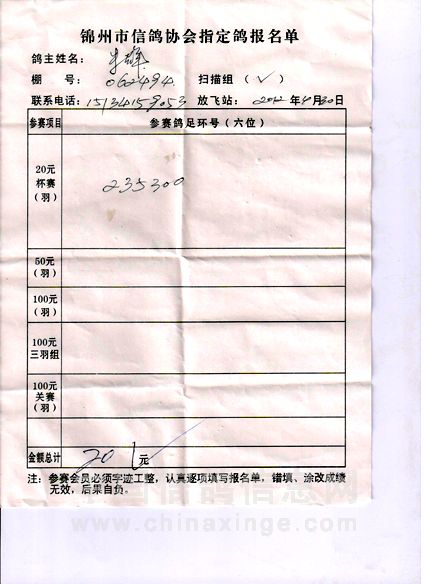 锦州市信鸽协会指定鸽报名单
鸽主姓名：
棚 号：062494 扫描组（√）
联系电话：15134159053 放飞站：2012年4月30日
参赛项目 参赛鸽足环号（六位）
20元
杯赛
（羽）
235300
50元
（羽）
100元
（羽）
100元
三羽组
100元
关赛
（羽）
金额总计 20 元
注：参赛会员必须字迹工整，认真逐项填写报名单，错填、涂改成绩
无效，后果自负。
中国信鸽信息网
www.chinaxinge.com